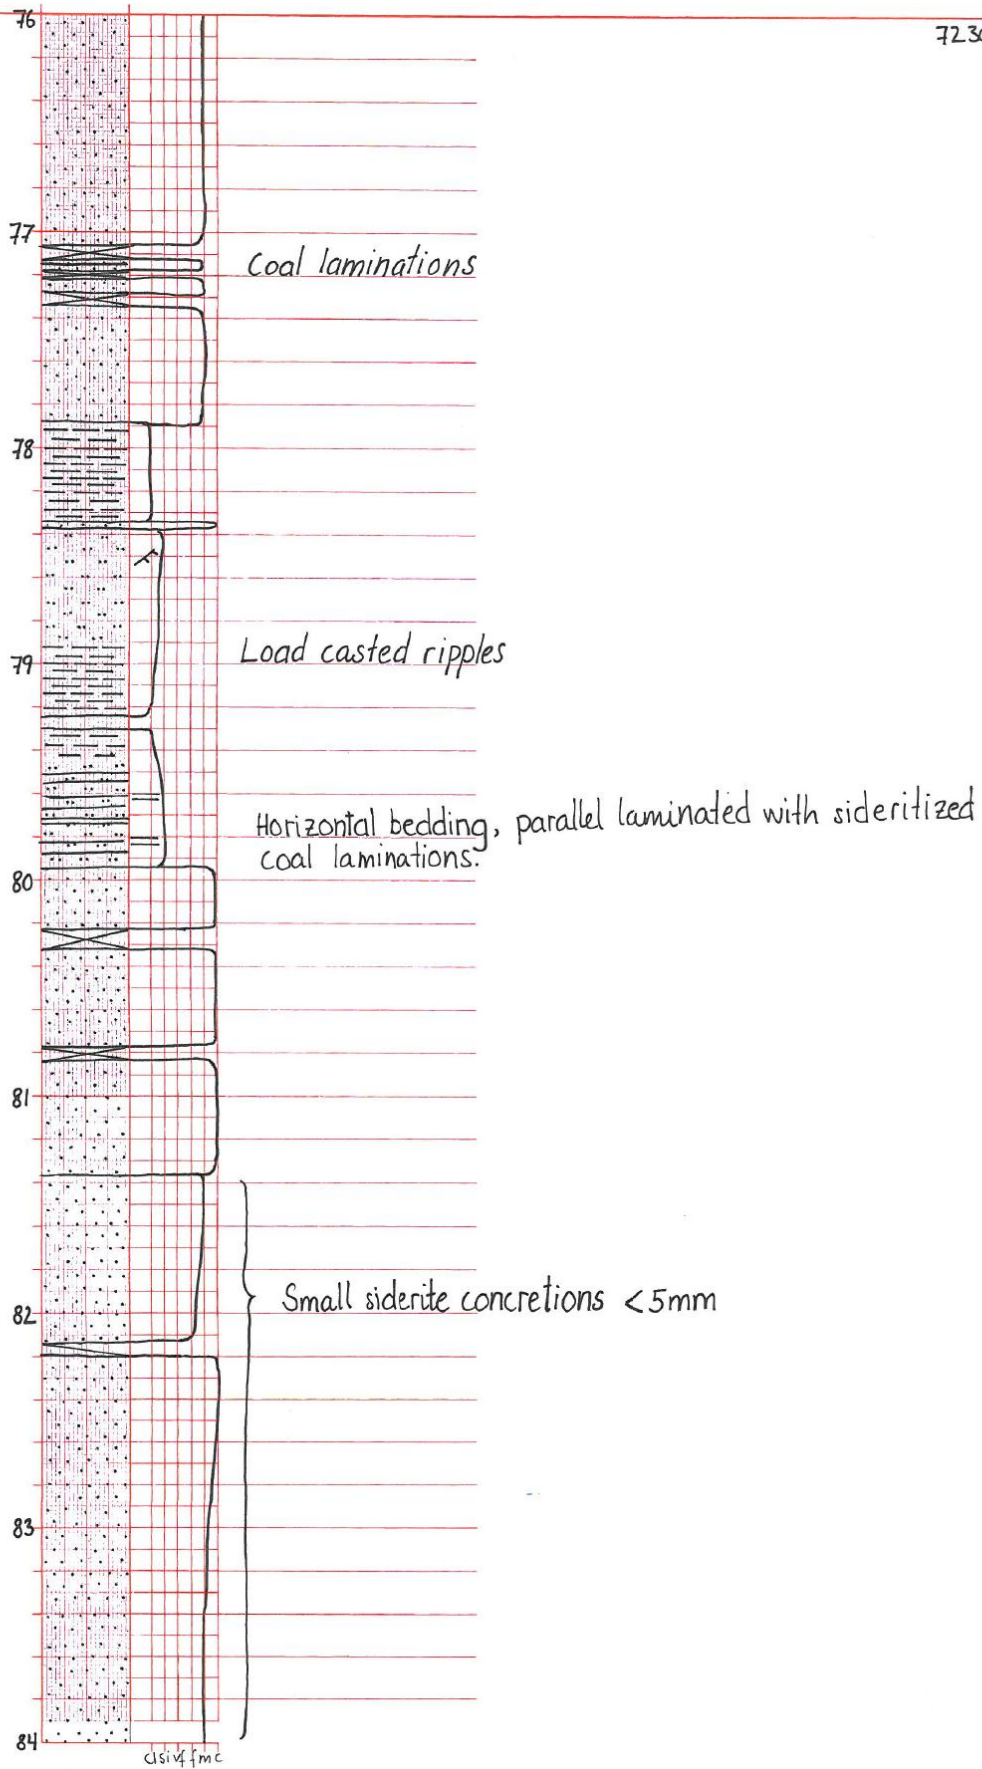 76
7230
77
Coal laminations
78
Load casted ripples
79
Horizontal bedding, parallel laminated with sideritized
coal laminations.
80
81
Small siderite concretions <5mm
82
83
84
clsivffmc